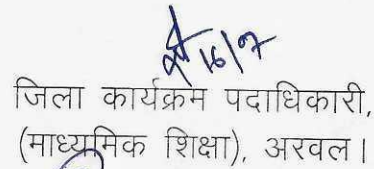 16/7
जिला कार्यक्रम पदाधिकारी,
(माध्यमिक शिक्षा), अरवल।